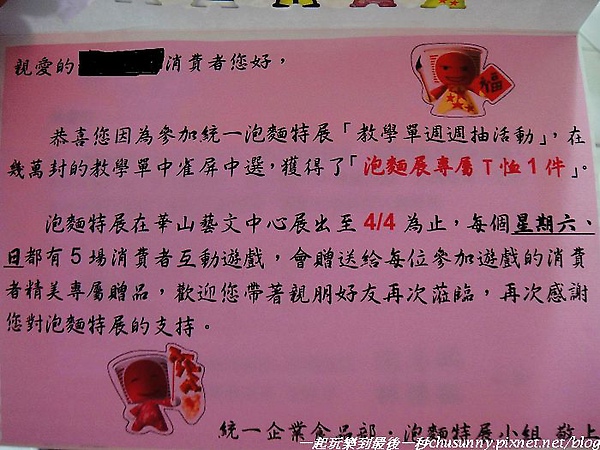 親愛的 消費者您好，
福
恭喜您因為參加統一泡麵特展「教學單週週抽活動」，在
幾萬封的教學單中雀屏中選，獲得了「泡麵展專屬T恤1件」。
泡麵特展在華山藝文中心展出至 4/4 為止，每個星期六、
日都有 5 場消費者互動遊戲，會贈送給每位參加遊戲的消費
者精美專屬贈品，歡迎您帶著親朋好友再次蒞臨，再次感謝
您對泡麵特展的支持。
統一企業食品部．泡麵特展小組 敬上
一起玩樂到最後一秒chusunny.pixnet.net/blog